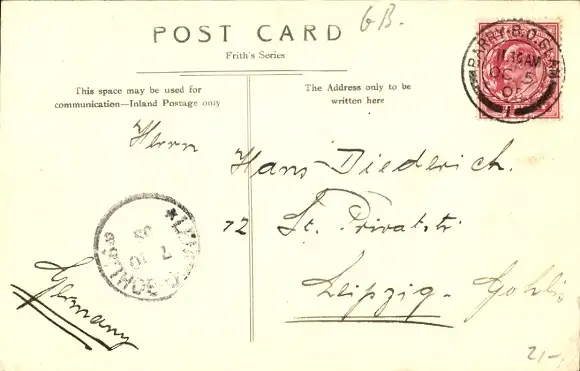 POST CARD
GB.
Frith's Series
This space may be used for
communication—Inland Postage only
The Address only to be
written here
BARRY. S.O. GLAM
OC 5
05
1
Herrn
Hans Diederich.
72 St. Privatstr
Leipzig - Gohlis
Germany
7
10
05
21-